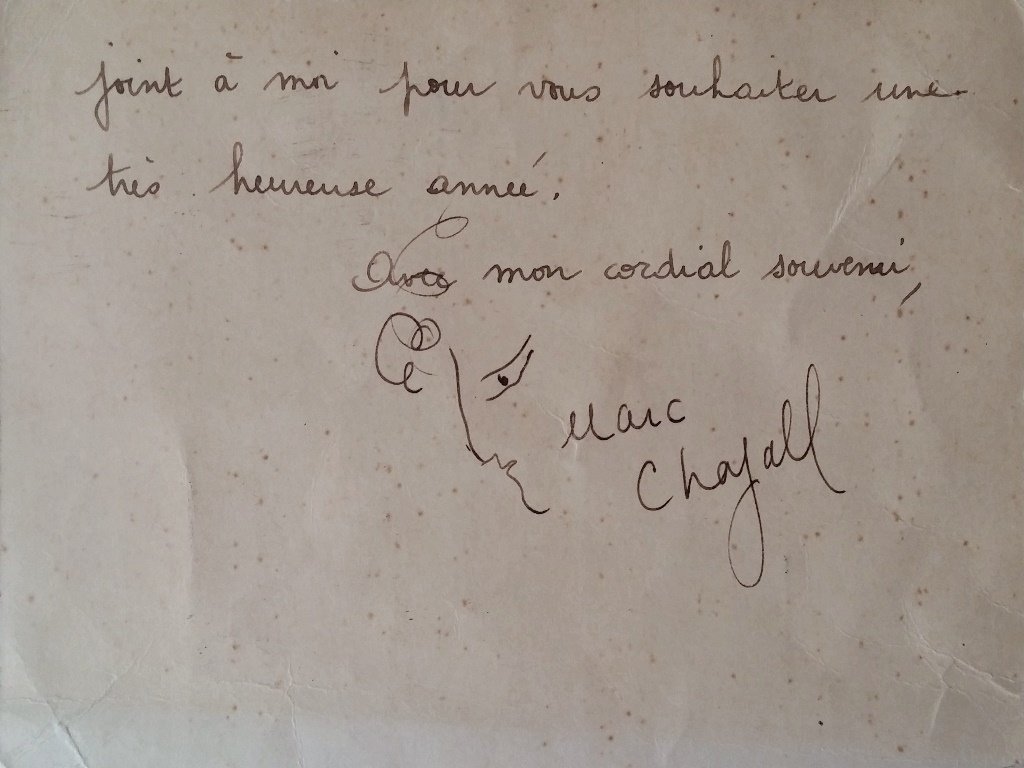 joint à moi pour vous souhaiter une
très heureuse année.
Avec mon cordial souvenir,
Marc
Chagall